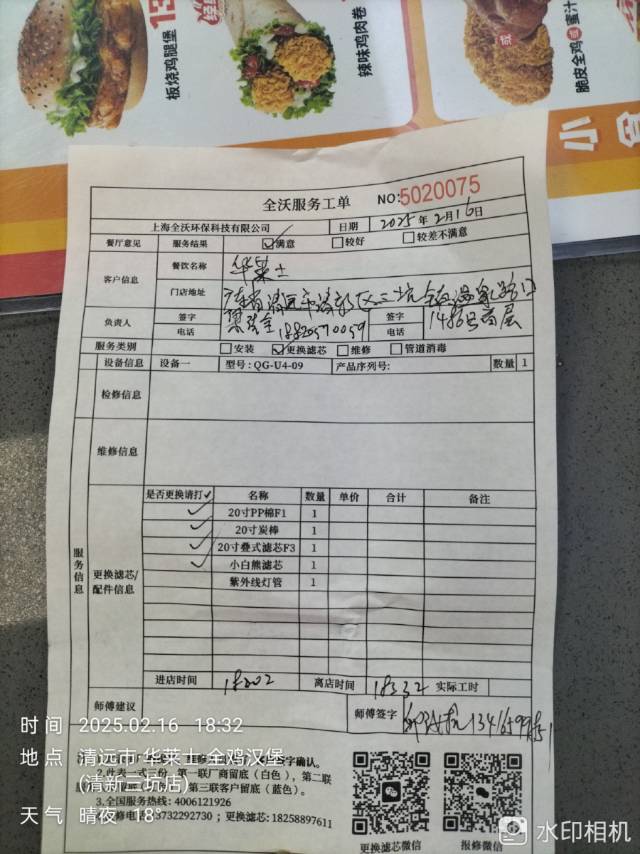 板烧鸡腿堡
辣味鸡肉卷
脆皮全鸡或蜜汁
小食
全沃服务工单 NO:5020075
上海全沃环保科技有限公司 日期 2025年2月16日
餐厅意见 服务结果 ☑满意 □较好 □较差不满意
客户信息 餐饮名称 华莱士
门店地址 广东省清远市清新区三坑镇温泉路口
148号首层
负责人 签字 签字
电话 18820590059 电话
服务类别 □安装 ☑更换滤芯 □维修 □管道消毒
设备信息 设备一 型号:QG-U4-09 产品序列号: 数量 1
检修信息
维修信息
服务信息
更换滤芯/配件信息
是否更换请打✓ 名称 数量 单价 合计 备注
✓ 20寸PP棉F1 1
✓ 20寸炭棒 1
✓ 20寸叠式滤芯F3 1
✓ 小白熊滤芯 1
紫外线灯管 1
进店时间 18:02 离店时间 18:32 实际工时
师傅建议 师傅签字
字确认。
2.此表一式三份，第一联厂商留底（白色），第二联
第三联客户留底（蓝色）。
3.全国服务热线：4006121926
修电话：13732292730；更换滤芯：18258897611
更换滤芯微信 报修微信
时间 2025.02.16 18:32
地点 清远市·华莱士·全鸡汉堡
(清新三坑店)
天气 晴夜 18°
水印相机